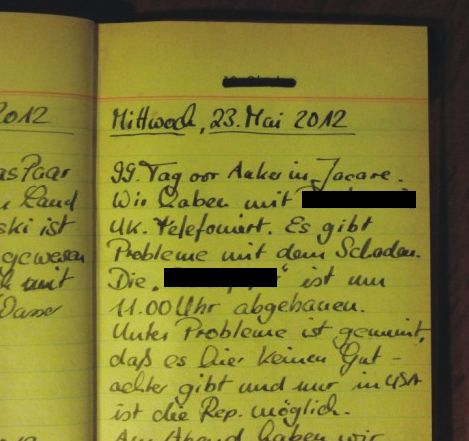 2012
asPaar
Land
ski ist
gewesen
mit
Wasser
Mittwoch, 23. Mai 2012
99. Tag vor Anker in Jacare.
Wir haben mit
UK. telefoniert. Es gibt
Probleme mit dem Schaden.
Die „ “ ist um
11.00 Uhr abgehauen.
Unter Probleme ist gemeint,
daß es hier keinen Gut-
achter gibt und nur in USA
ist die Rep. möglich.
Am Abend haben wir